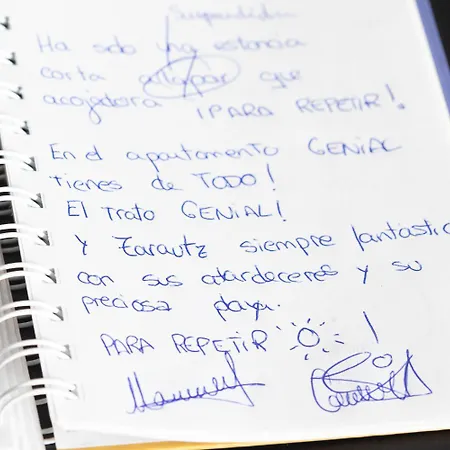 Ha sido una estancia
corta a la par que
acojedora ¡PARA REPETIR!
En el apartamento GENIAL
tienes de TODO!
El trato GENIAL!
Y Zarautz siempre fantástic
con sus atardeceres y su
preciosa playa.
PARA REPETIR !